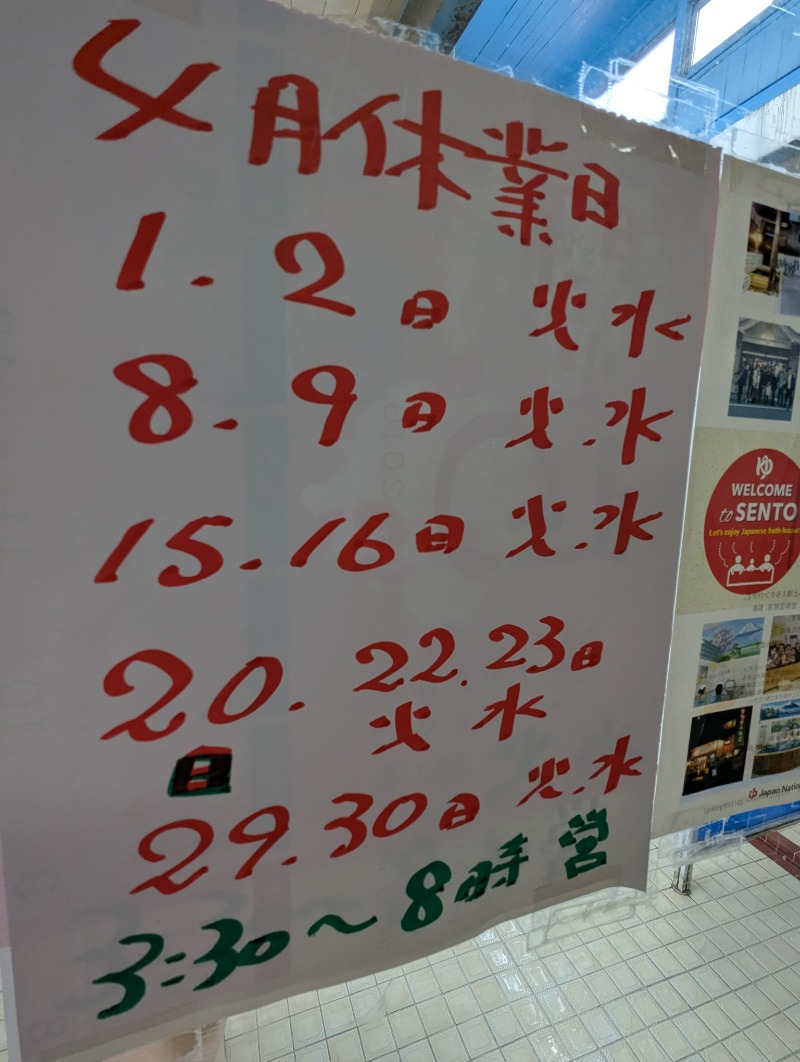 4月休業日
1. 2日 火 水
8. 9日 火.水
15.16日 火.水
20. 22.23日
日 火 水
29.30日 火.水
3:30～8時 営
WELCOME
to SENTO
Let's enjoy Japanese bath house
Japan Natio